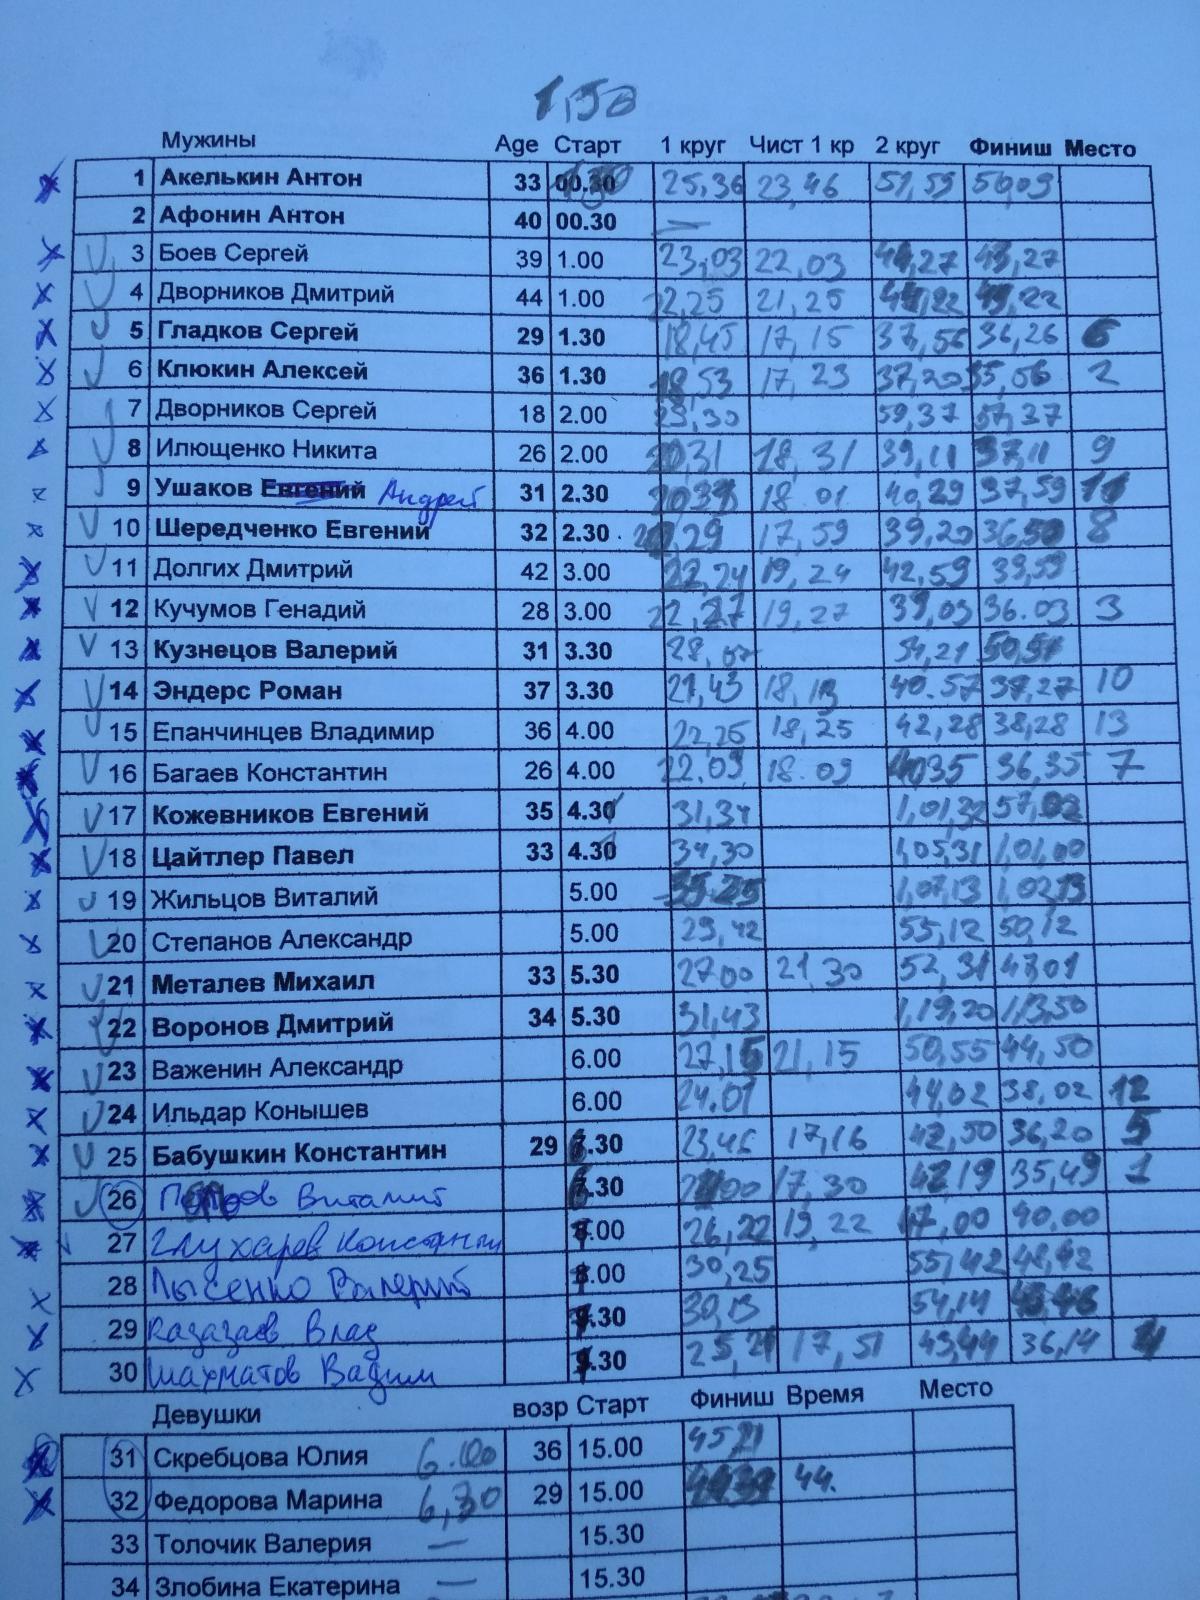 1,50
Мужины Age Старт 1 круг Чист 1 кр 2 круг Финиш Место
1 Акелькин Антон 33 00.30 25,36 23,46 51,59 50,09
2 Афонин Антон 40 00.30 —
3 Боев Сергей 39 1.00 23,03 22,03 44,27 43,27
4 Дворников Дмитрий 44 1.00 22,25 21,25
5 Гладков Сергей 29 1.30 18,45 17,15 37,56 36,26 6
6 Клюкин Алексей 36 1.30 18,53 17,23 37,20 2
7 Дворников Сергей 18 2.00 59,37 57,37
8 Илющенко Никита 26 2.00 20,31 18,31 39,11 37,11 9
9 Ушаков Андрей 31 2.30 18 01 40,29 37,59 11
10 Шередченко Евгений 32 2.30 20,29 17,59 39,20 36,50 8
11 Долгих Дмитрий 42 3.00 22,24 19,24 42,59 39,59
12 Кучумов Генадий 28 3.00 22,27 19,27 39,03 36.03 3
13 Кузнецов Валерий 31 3.30 28,07 54,21 50,51
14 Эндерс Роман 37 3.30 21,43 18,13 40.57 37,27 10
15 Епанчинцев Владимир 36 4.00 18,25 42,28 38,28 13
16 Багаев Константин 26 4.00 22.09 18.09 4035 36,35 7
17 Кожевников Евгений 35 4.30 31,34 1,01,32 57,02
18 Цайтлер Павел 33 4.30 34,30 1,05,31 1,01,00
19 Жильцов Виталий 5.00 35 25 1,07,13 1,02,13
20 Степанов Александр 5.00 29,42 55,12 50,12
21 Металев Михаил 33 5.30 2700 21,30 52,31 4701
22 Воронов Дмитрий 34 5.30 31,43 1,19,20 1,13,50
23 Важенин Александр 6.00 27,15 21,15 50,55 44,50
24 Ильдар Конышев 6.00 24.01 44,02 38,02 12
25 Бабушкин Константин 29 6.30 23,46 17,16 42,50 36,20 5
26 Виталий 6.30 17,30 42,19 35,49 1
27 Глухарев Константин 7.00 26,22 19,22 47,00 40.00
28 Лысенко Валерий 7.00 30,25 55,42 48,42
29 Казазаев Влад 7.30 30,13 54,14
30 Шахматов Вадим 7.30 25,21 17,51 43,44 36,14 4
Девушки возр Старт Финиш Время Место
31 Скребцова Юлия 6.00 36 15.00 4521
32 Федорова Марина 6,30 29 15.00 44.
33 Толочик Валерия — 15.30
34 Злобина Екатерина — 15.30